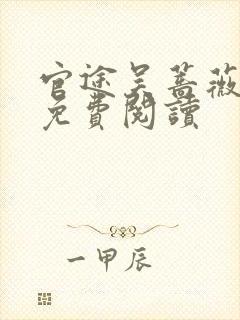 官途吴蔷薇
免費閱讀
一甲辰